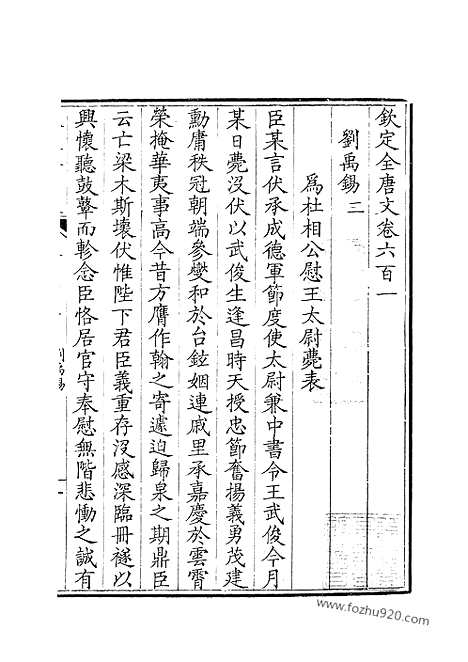 欽定全唐文卷六百一
劉禹錫 三
爲杜相公慰王太尉薨表
臣某言伏承成德軍節度使太尉兼中書令王武俊今月
某日薨沒伏以武俊生逢昌時天授忠節奮揚義勇茂建
勳庸秩冠朝端參變和於台鉉姻連戚里承嘉慶於雲霄
榮掩華夷事高今昔方膺作翰之寄遽迫歸泉之期鼎臣
云亡梁木斯壞伏惟陛下君臣義重存沒感深臨冊禭以
興懷聽鼓鼙而軫念臣恪居官守奉慰無階悲慟之誠有
www.fozhu920.com